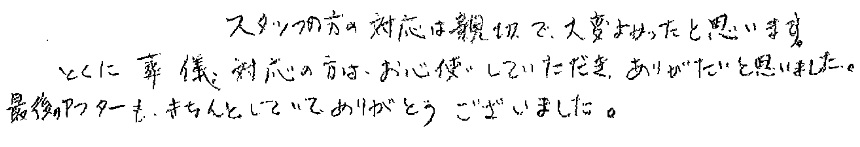 スタッフの方の対応は親切で、大変よかったと思います。
とくに葬儀対応の方は、お心使いしていただき、ありがたいと思いました。
最後のアフターも、きちんとしていてありがとうございました。